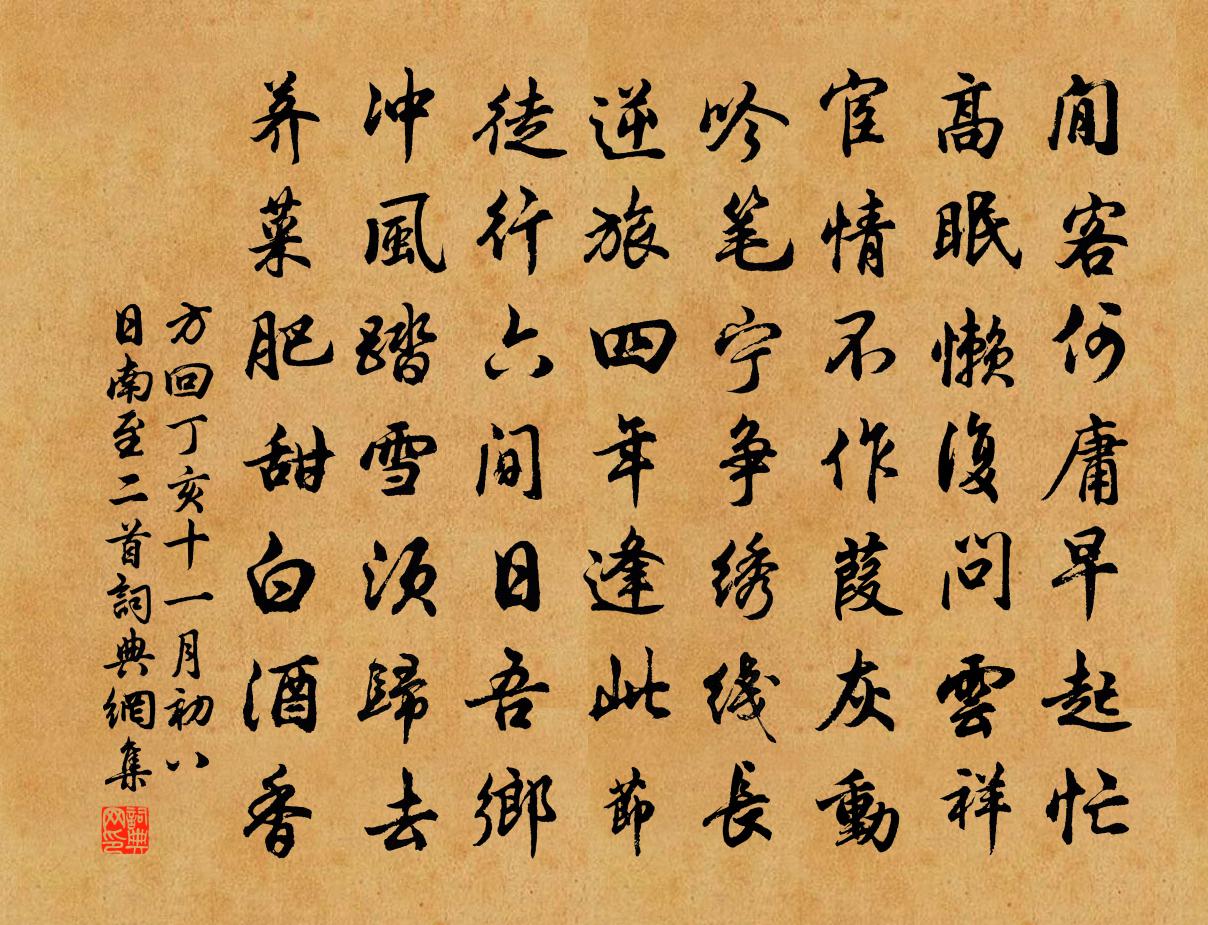 閒客何庸早起忙
高眠懶復問雲祥
宦情不作葭灰動
吟笔宁争绣线長
逆旅四年逢此節
徒行六間日吾鄉
冲風踏雪须歸去
荠菜肥甜白酒香
方回丁亥十一月初八
日南至二首詞典網集
詞典网印